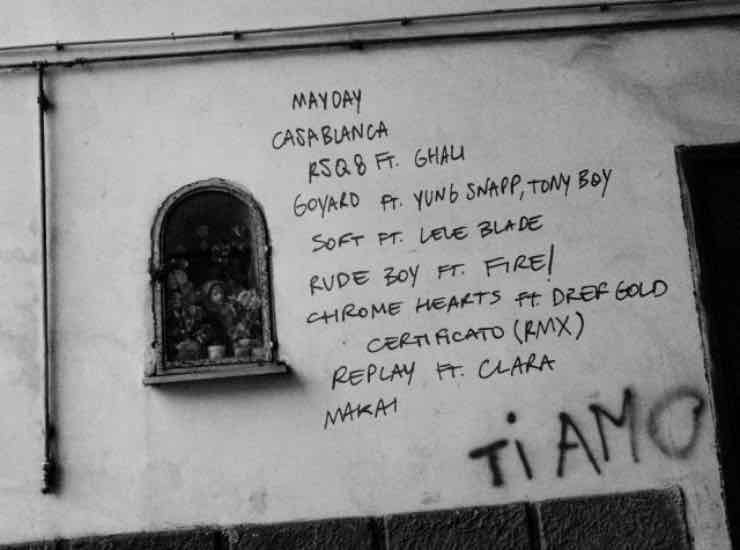 MAYDAY
CASABLANCA
RSQ8 FT. GHALI
GOYARD FT. YUNG SNAPP, TONY BOY
SOFT FT. LELE BLADE
RUDE BOY FT. FIRE!
CHROME HEARTS FT. DREFGOLD
CERTIFICATO (RMX)
REPLAY FT. CLARA
NAKAI
TI AMO